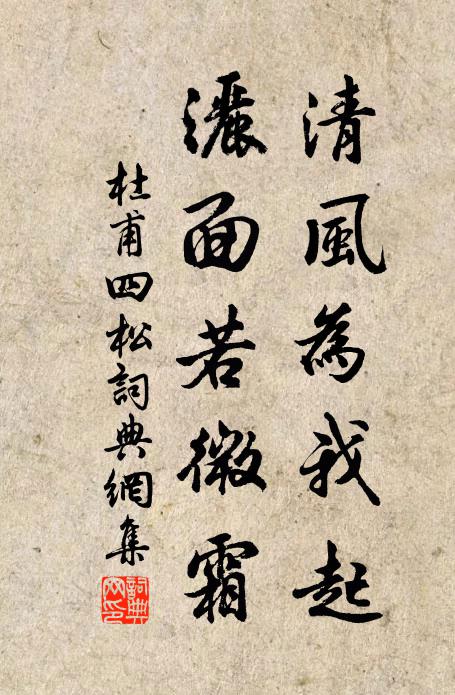 清風為我起
灑面若微霜
杜甫四松詞典網集
詞典网印